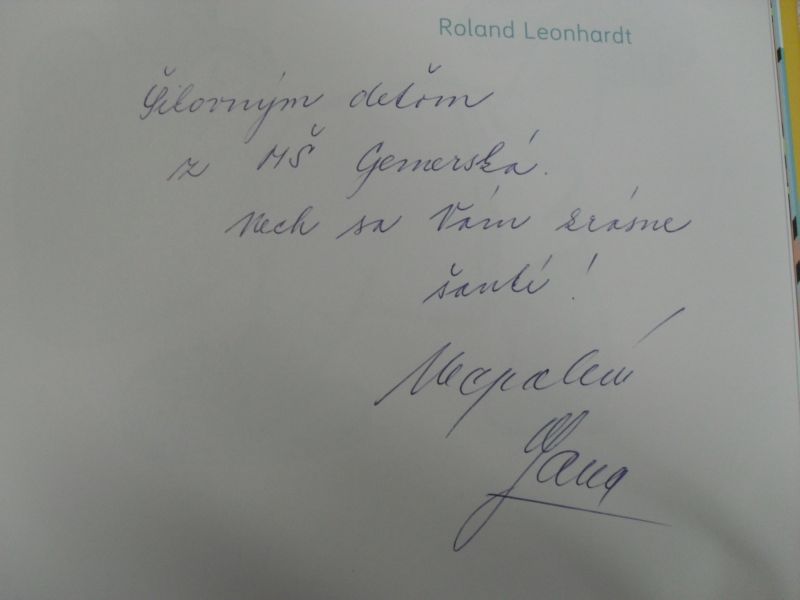 Roland Leonhardt
Šikovným deťom
z MŠ Gemerská.
Nech sa Vám krásne
šantí!
Jana